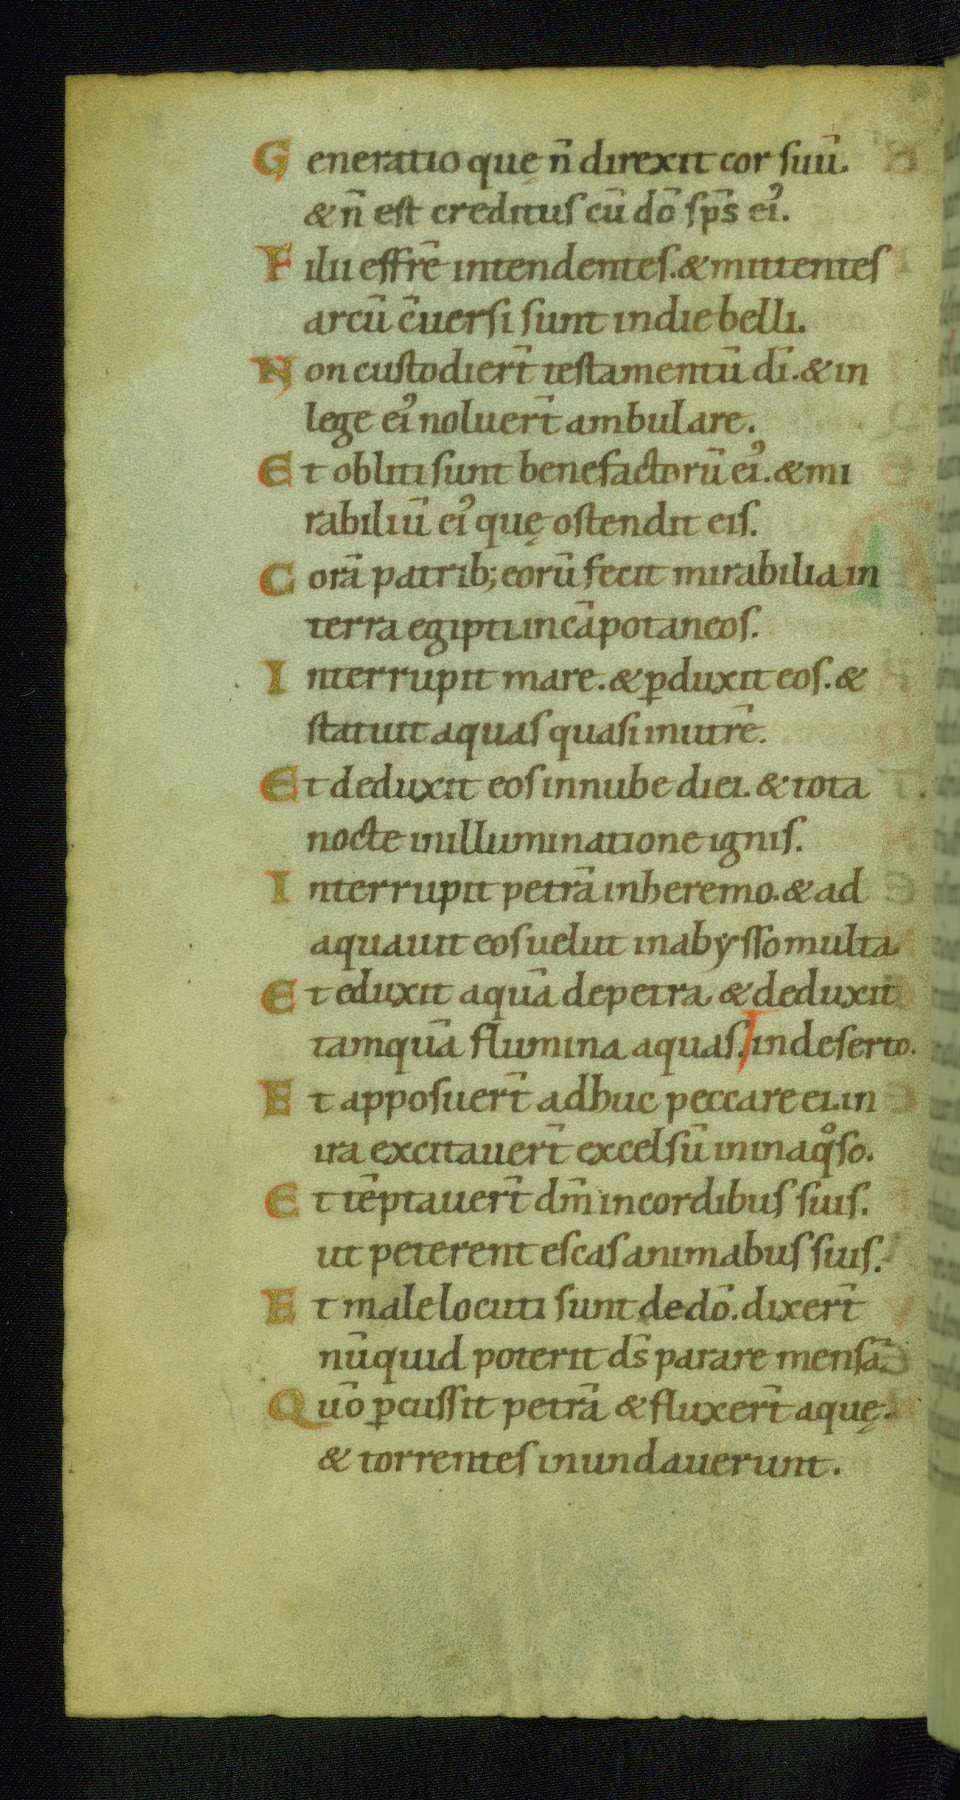 Generatio quę n̄ direxit cor suū.
& n̄ est creditus cū dō sp̄s eı᾿.
Filii effrē intendentes. & mittentes
arcū c̄uersi sunt in die belli.
Non custodier̄t testamentū dī. & in
lege eı᾿ noluer̄t ambulare.
Et obliti sunt benefactorū eı᾿. & mi
rabiliū eı᾿ quę ostendit eis.
Corā patrib; eorū fecit mirabilia in
terra egipti. in cāpo taneos.
Interrupit mare. & ꝑduxit eos. &
statuit aquas quasi in utrē.
Et deduxit eos in nube diei. & tota
nocte in illuminatione ignis.
Interrupit petrā in heremo. & ad
aquauit eos uelut in abysso multa.
Et eduxit aquā de petra. & deduxit
tamquā flumina aquas. in deserto.
Et apposuer̄t adhuc peccare ei. in
ira excitauer̄t excelsū in inaqͦso.
Et tēptauer̄t dm̄ in cordibus suis.
ut peterent escas animabus suis.
Et male locuti sunt de dō. dixer̄t
nūquid poterit ds̄ parare mensā
Quō ꝑcussit petrā & fluxer̄t aquę.
& torrentes inundauerunt.